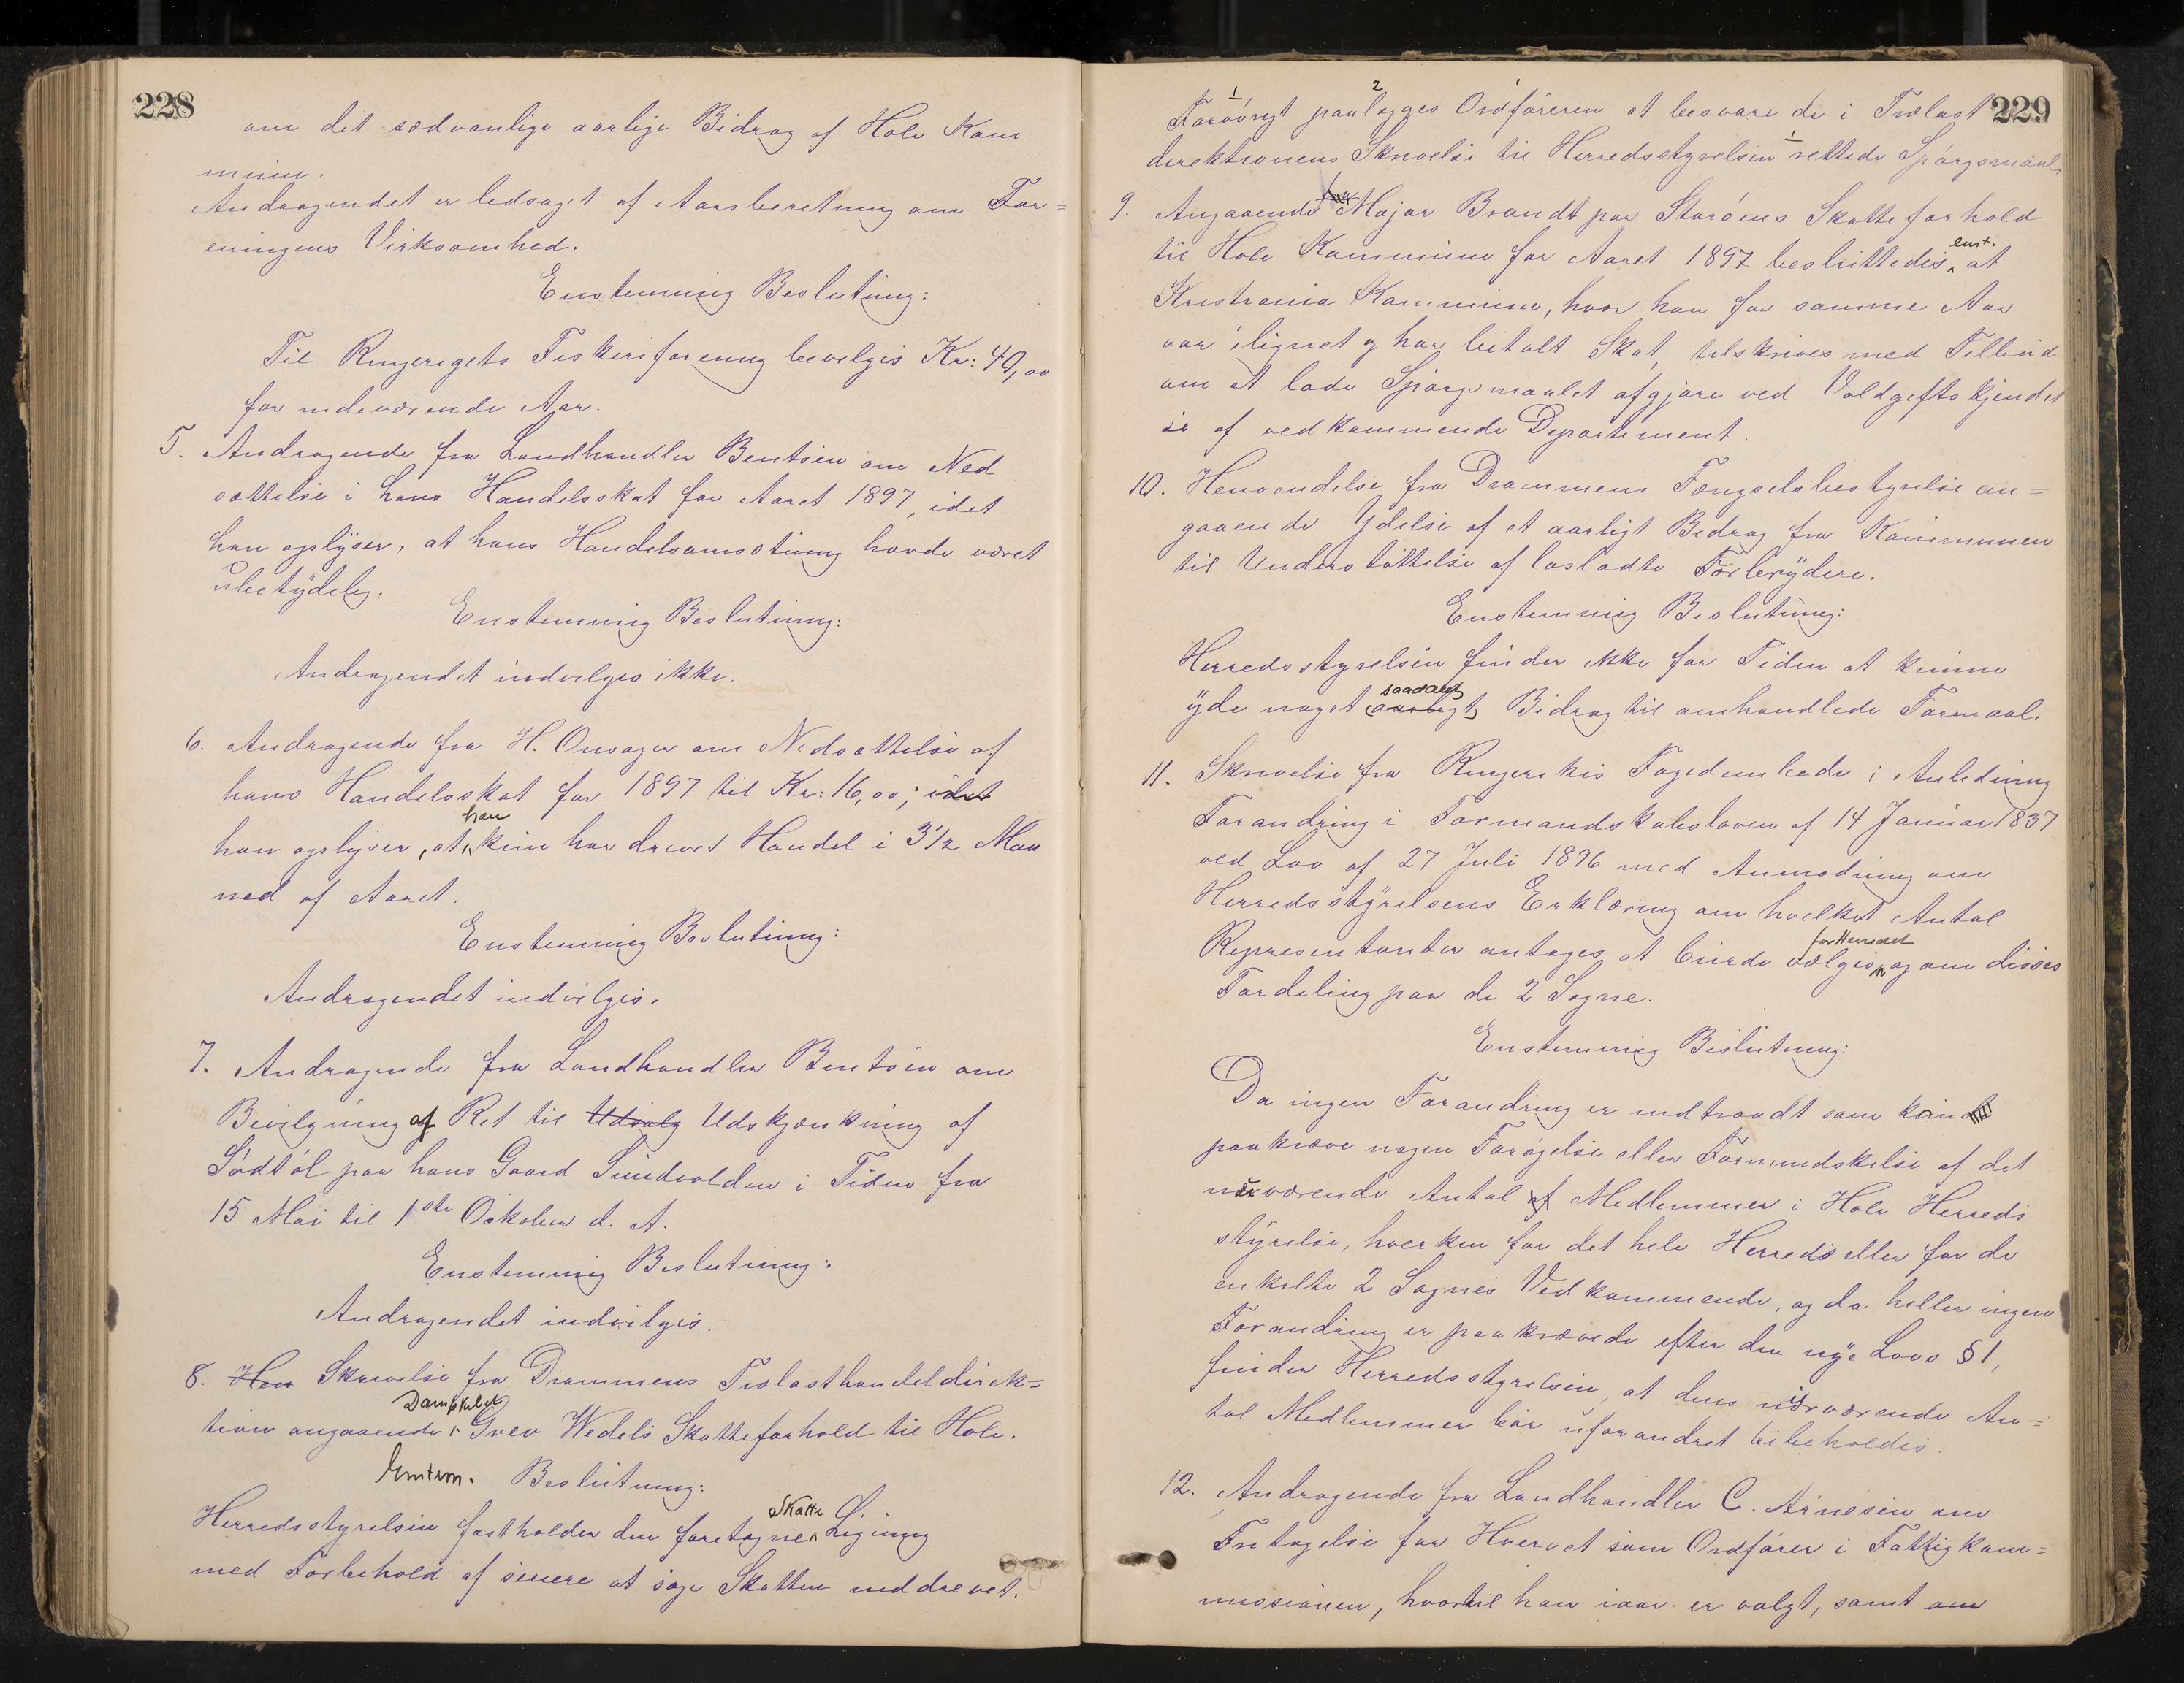 228
om det sædvanlige aarlige Bidrag af Hole Kom
mune.
Andragendet er ledsaget af Aarsberetning om For=
eningens Virksomhed.
Enstemmig Beslutning:
Til Ringerigets Fiskeriforening bevilges Kr: 40,00
for indeværende Aar.
5. Andragende fra Landhandler Bentsen om Ned
sættelse i hans Handelsskat for Aaret 1897, idet
han oplyser, at hans Handelsomsætning havde været
ubetydelig.
Enstemmig Beslutning:
Andragendet indvilges ikke.
6. Andragende fra H. Onsager om Nedsættelse af
hans Handelsskat for 1897 til Kr: 16,00; idet
han oplyser, at han kun har drevet Handel i 3 1/2 Maa
ned af Aaret.
Enstemmig Beslutning:
Andragendet indvilges.
7. Andragende fra Landhandler Bentsen om
Bevilgning af Ret til Udsalg Udskjænkning af
Sødtøl paa hans Gaard Sundvolden i Tiden fra
15 Mai til 1ste Oktober d. A.
Enstemmig Beslutning:
Andragendet indvilges.
8. Hen Skrivelse fra Drammens Trælasthandeldirek=
tion angaaende Dampskibet Grev Wedels Skatteforhold til Hole.
Enstem. Beslutning:
Herredsstyrelsen fastholder den foretagne Skatte Ligning
med Forbehold af senere at søge Skatten inddrevet.
229
Forøvrigt paalægges Ordføreren at besvare de i Trælast
direktionens Skrivelse til Herredsstyrelsen rettede Spørgsmaal.
9. Angaaende Major Brandt paa Storøens Skatteforhold
til Hole Kommune for Aaret 1897 besluttedes enst. at
Kristiania Kommune, hvor han for samme Aar
var ilignet og har betalt Skat, tilskrives med Tilbud
om at lade Spørgsmaalet afgjøre ved Voldgiftskjendel
se af vedkommende Departement.
10. Henvendelse fra Drammens Fængselsbestyrelse an=
gaaende Ydelse af et aarligt Bidrag fra Kommunen
til Understøttelse af løsladte Forbrydere.
Enstemmig Beslutning:
Herredsstyrelsen finder ikke for Tiden at kunne
yde noget aarligt saadant Bidrag til omhandlede Formaal.
11. Skrivelse fra Ringerikes Fogedembede i Anledning
Forandring i Formandskabsloven af 14 Januar 1837
ved Lov af 27 Juli 1896 med Anmodning om
Herredsstyrelsens Erklæring om hvilket Antal
Repræsentanter antages at burde vælges for Herredet og om disses
Fordeling paa de 2 Sogne.
Enstemmig Beslutning:
Da ingen Forandring er indtraadt som kand
paakræve nogen Forøgelse eller Formindskelse af det
nuværende Antal af Medlemmer i Hole Herreds
styrelse, hverken for det hele Herreds eller for de
enkelte 2 Sognes Vedkommende, og da heller ingen
Forandring er paakrævede efter den nye Lovs § 1,
finder Herredsstyrelsen, at dens nuværende An=
tal Medlemmer bør uforandret bibeholdes.
12. Andragende fra Landhandler C. Arnesen om
Fritagelse for Hvervet som Ordfører i Fattigkom=
missionen, hvortil han iaar er valgt, samt om